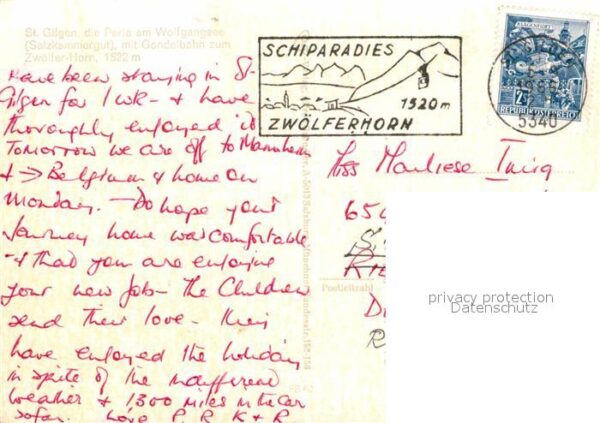 St. Gilgen, die Perle am Wolfgangsee
(Salzkammergut), mit Gondelbahn zum
Zwölfer-Horn, 1522 m
Have been staying in St-
Gilgen for 1 wk - & have
thoroughly enjoyed it
Tomorrow we are off to Mannheim
& → Belgium & home on
Monday. - Do hope your
Journey home was comfortable
- & that you are enjoying
your new job - The Children
send their love - they
have enjoyed the holiday
in spite of the indifferent
weather & 1300 miles in the car
so far. Love P. R. K & R
SCHIPARADIES
1520 m
ZWÖLFERHORN
KLAGENFURT
REPUBLIK ÖSTERREICH
5340
Miss
65
Postleitzahl
privacy protection
Datenschutz